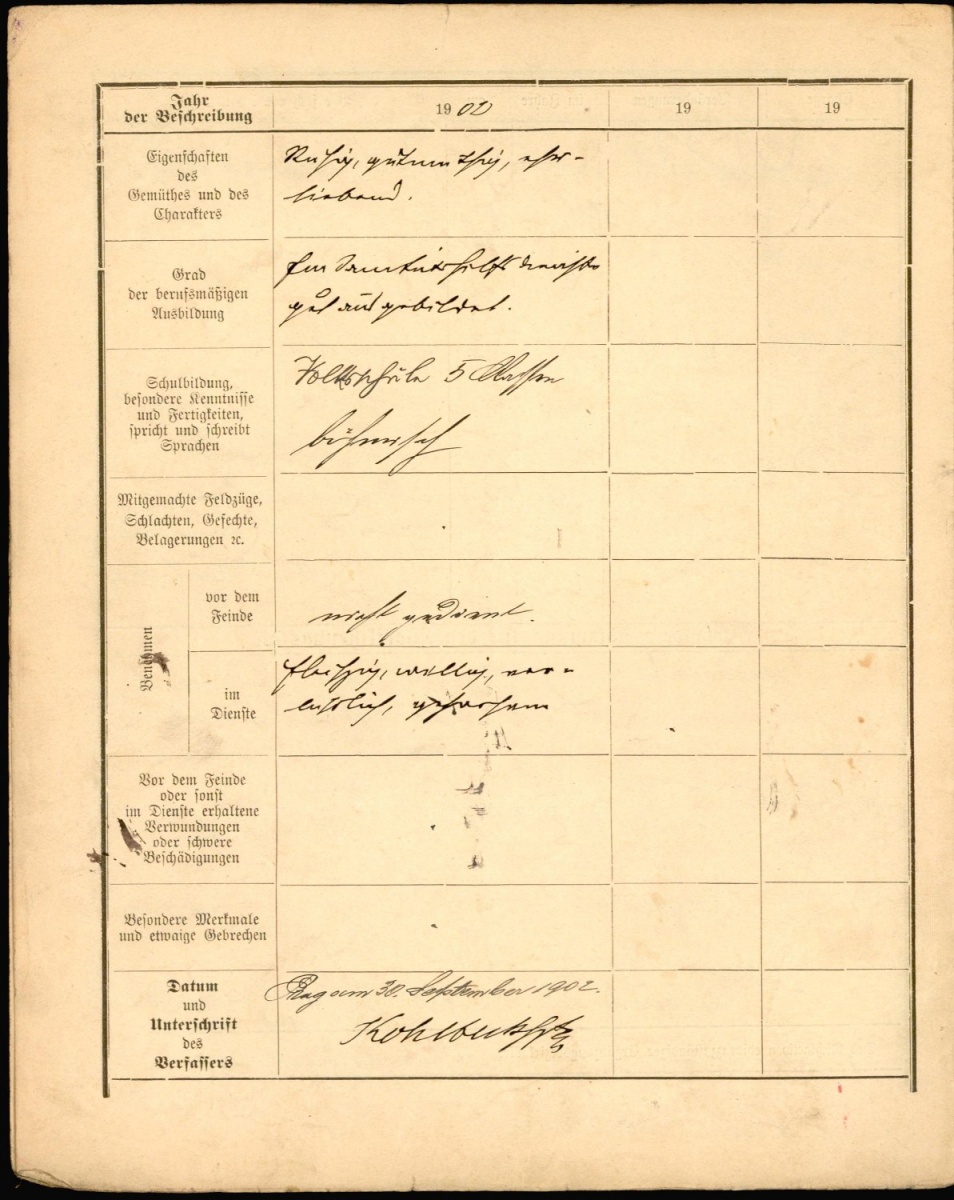 Jahr
der Beschreibung
1902
19
19
Eigenschaften
des
Gemüthes und des
Charakters
Ruhig, gutmüthig, ehr-
liebend.
Grad
der berufsmäßigen
Ausbildung
Im Sanitätshilfsdienste
gut ausgebildet.
Schulbildung,
besondere Kenntnisse
und Fertigkeiten,
spricht und schreibt
Sprachen
Volksschule 5 Classen
böhmisch
Mitgemachte Feldzüge,
Schlachten, Gefechte,
Belagerungen ꝛc.
Benehmen
vor dem
Feinde
nicht gedient.
im
Dienste
fleißig, willig, ver-
läßlich, gehorsam
Vor dem Feinde
oder sonst
im Dienste erhaltene
Verwundungen
oder schwere
Beschädigungen
Besondere Merkmale
und etwaige Gebrechen
Datum
und
Unterschrift
des
Verfassers
Prag am 30. September 1902.